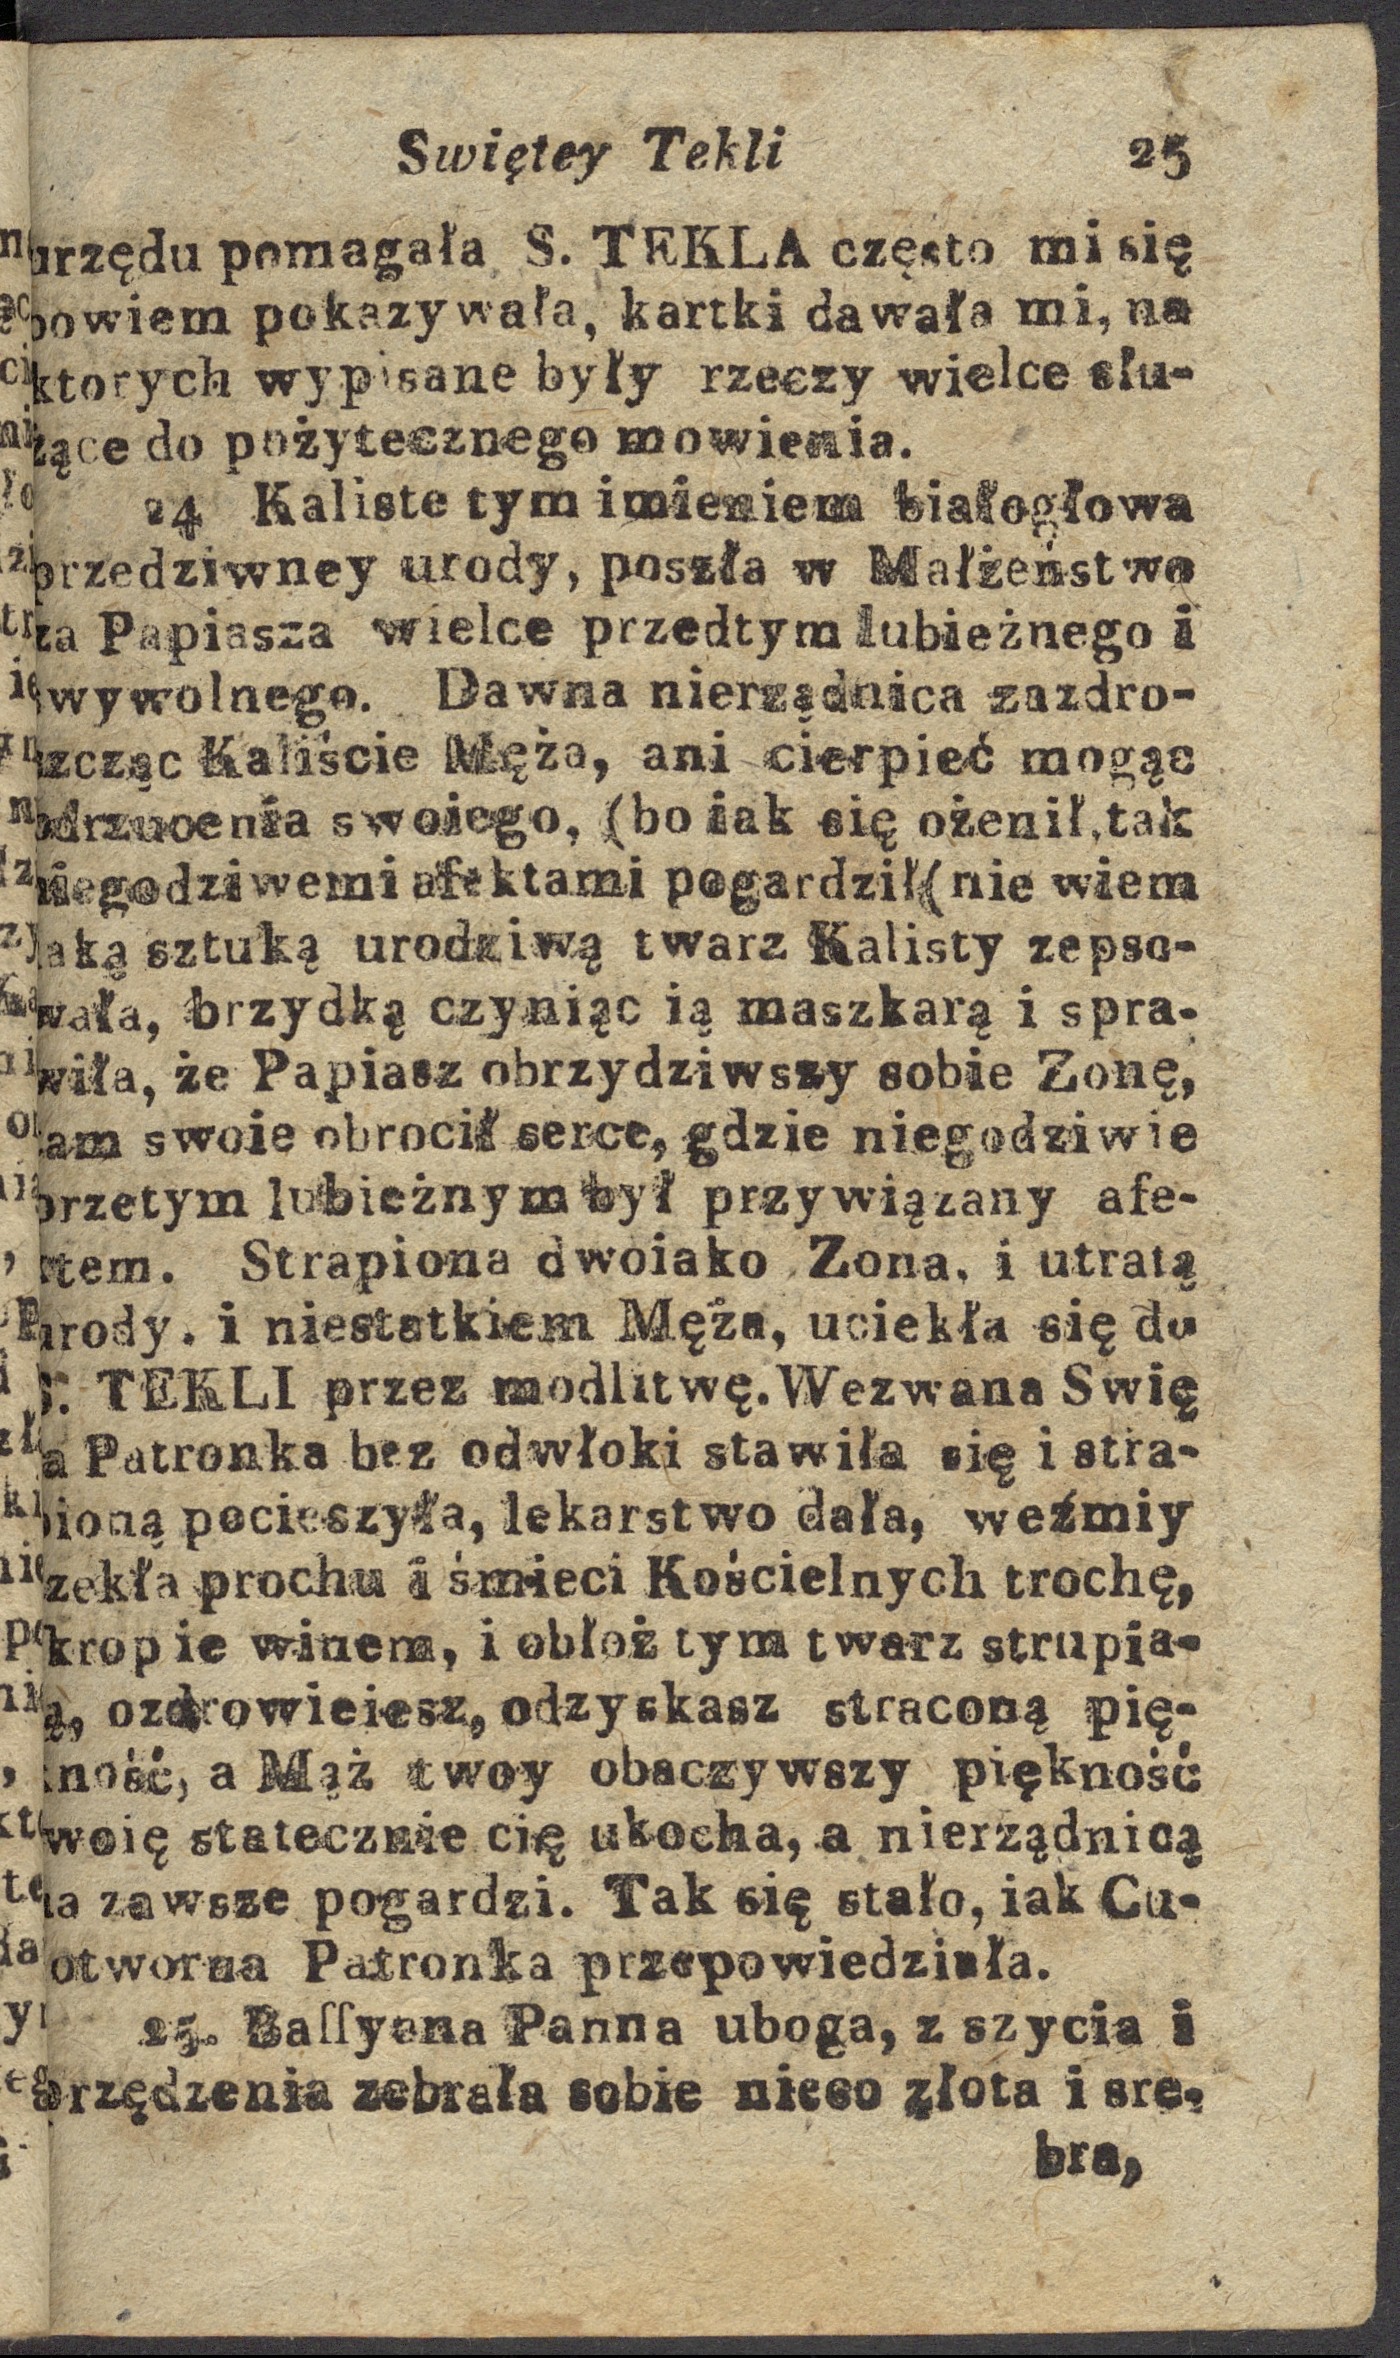 Swiętey Tekli 25
urzędu pomagała S. TEKLA często mi się
bowiem pokazywała, kartki dawała mi, na
ktorych wypisane były rzeczy wielce słu-
żące do pożytecznego mowienia.
24 Kaliste tym imieniem białogłowa
przedziwney urody, poszła w Małżeństwo
za Papiasza wielce przedtym lubieżnego i
wywolnego. Dawna nierządnica zazdro-
szcząc Kaliście Męża, ani cierpieć mogąc
odrzucenia swoiego, (bo iak się ożenił, tak
niegodziwemi afektami pogardził( nie wiem
iaką sztuką urodziwą twarz Kalisty zepso-
wała, brzydką czyniąc ią maszkarą i spra-
wiła, że Papiasz obrzydziwszy sobie Zonę,
tam swoie obrocił serce, gdzie niegodziwie
przetym lubieżnym był przywiązany afe-
ktem. Strapiona dwoiako Zona, i utratą
urody. i niestatkiem Męża, uciekła się do
S. TEKLI przez modlitwę. Wezwana Swię
a Patronka bez odwłoki stawiła się i stra-
pioną pocieszyła, lekarstwo dała, weźmiy
zekła prochu i śmieci Kościelnych trochę,
krop ie winem, i obłoż tym twarz strupia-
ą, ozdrowieiesz, odzyskasz straconą pię-
kność, a Mąż twoy obaczywszy piękność
woię statecznie cię ukocha, a nierządnicą
na zawsze pogardzi. Tak się stało, iak Cu-
otworna Patronka przepowiedziała.
25. Baſſyena Panna uboga, z szycia i
przędzenia zebrała sobie nieco złota i sre-
bra,